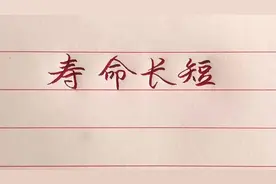 寿命长短